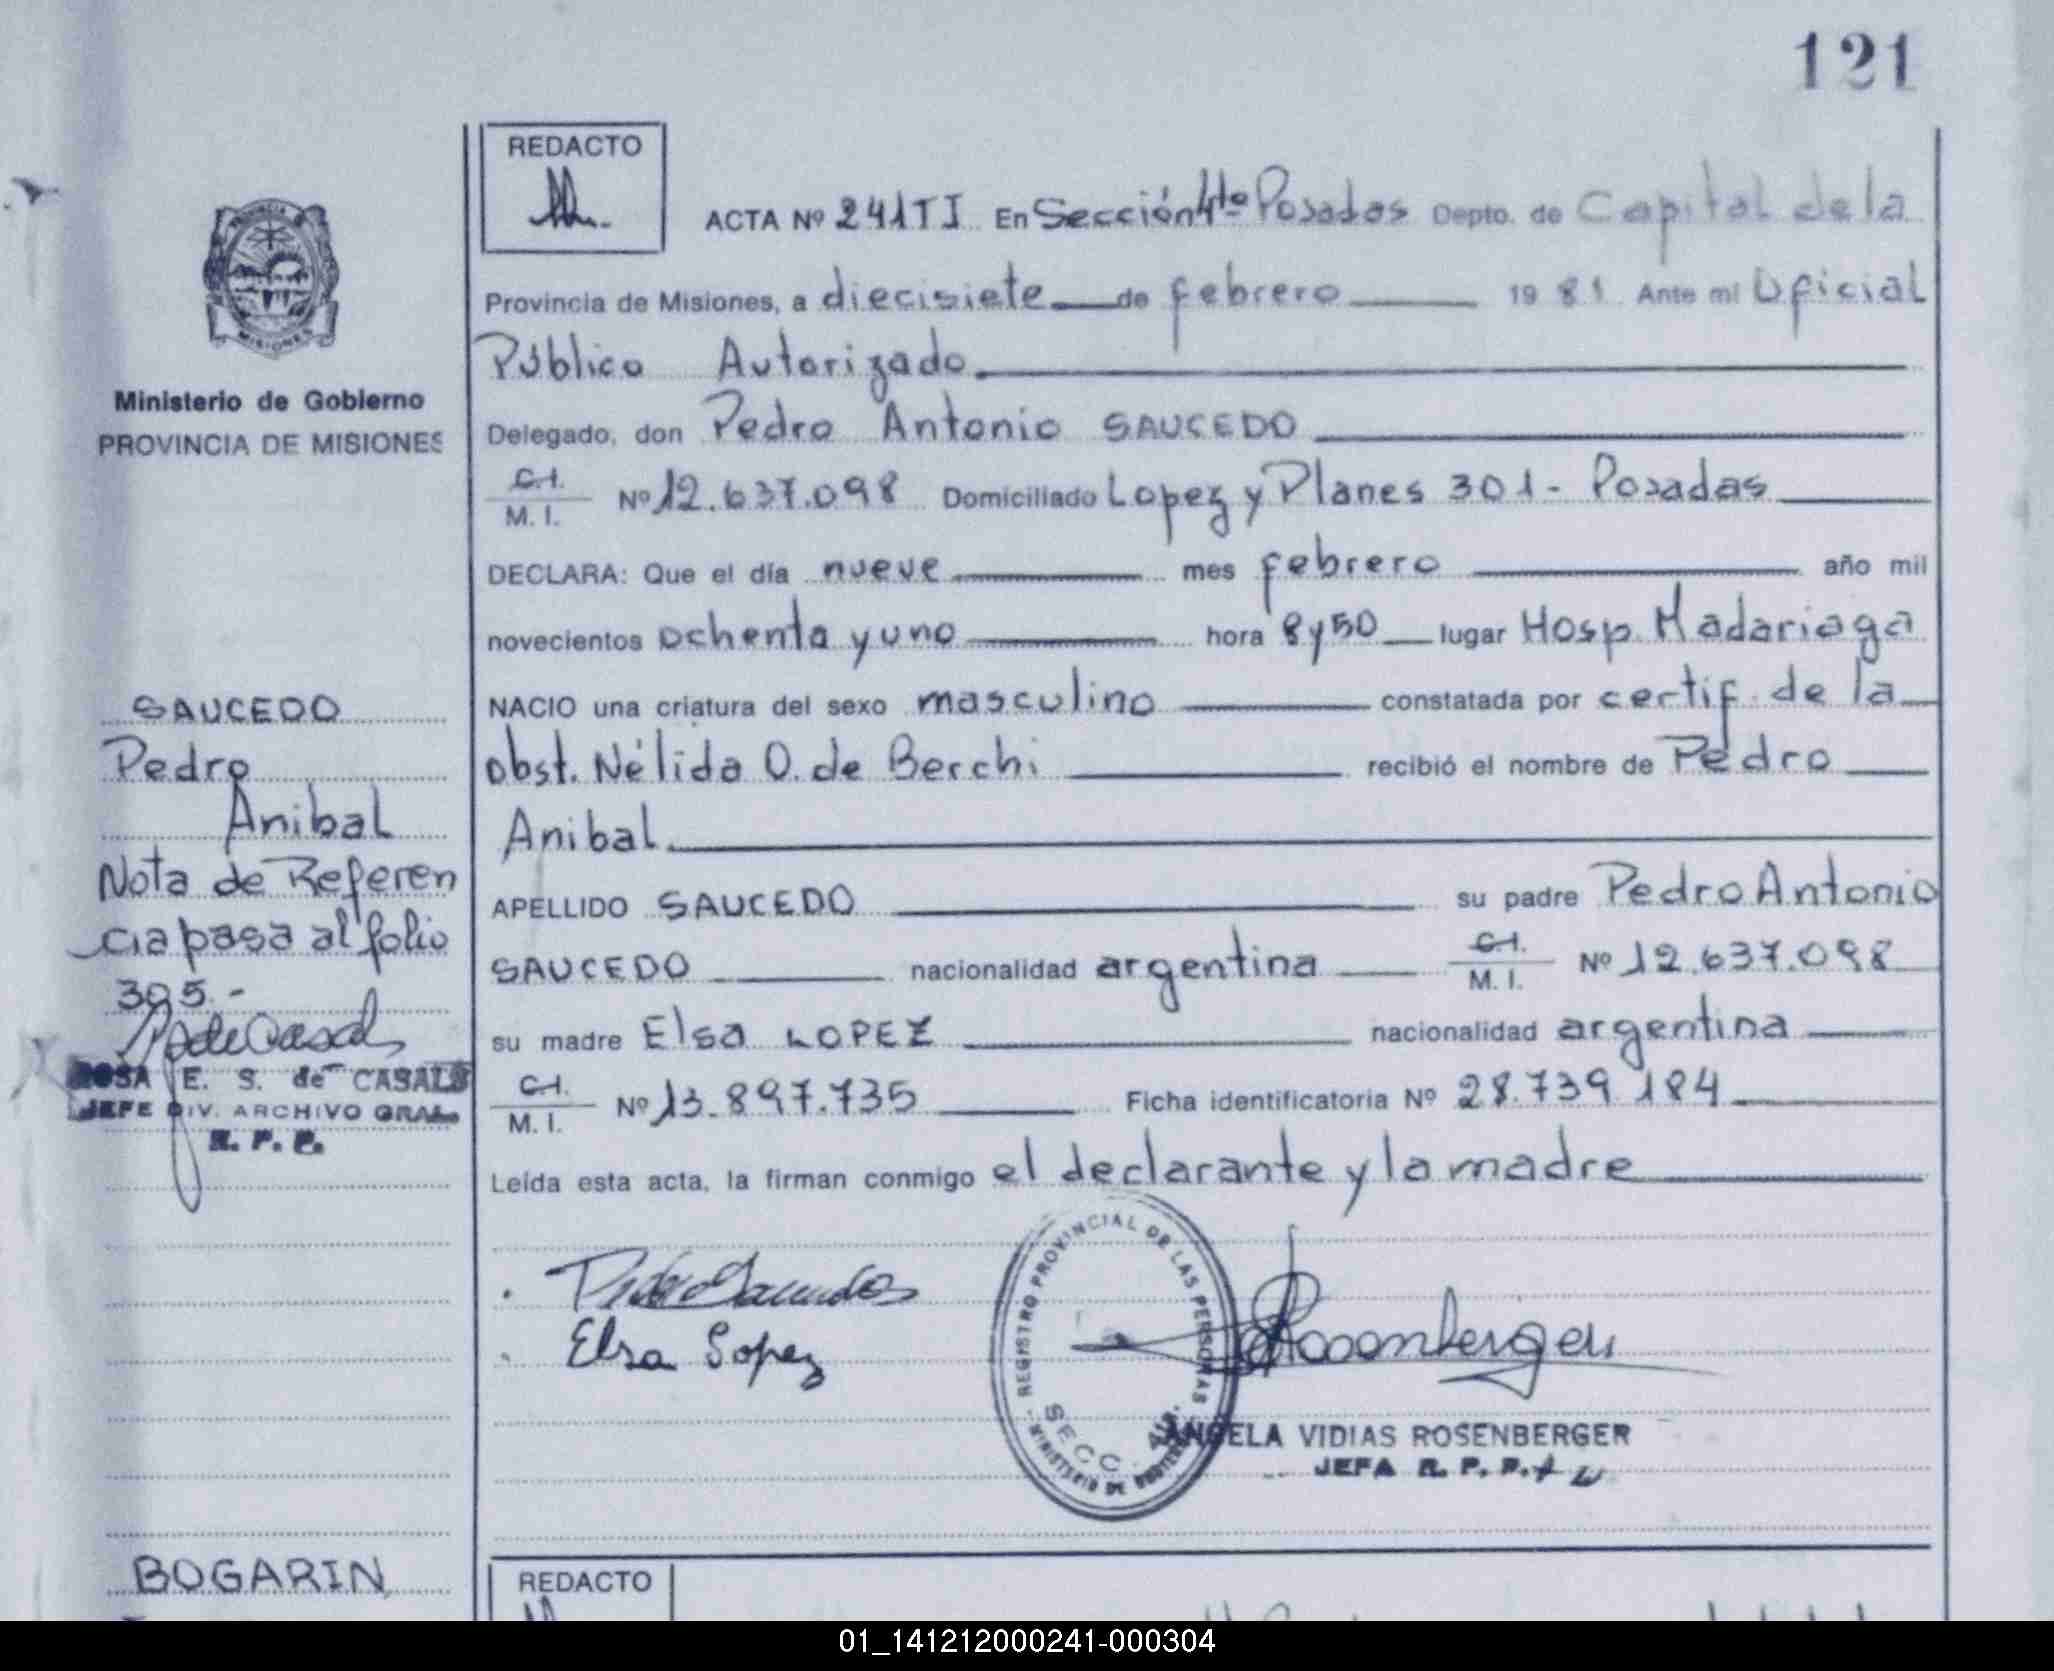 121
REDACTO
ACTA Nº 241 T I En Sección 4tº Posadas Depto. de Capital de la
Provincia de Misiones, a diecisiete de febrero 1981 Ante mi Oficial
Público Autorizado
Delegado, don Pedro Antonio SAUCEDO
C.I. M. I. Nº 12.637.098 Domiciliado Lopez y Planes 301 - Posadas
DECLARA: Que el día nueve mes febrero año mil
novecientos ochenta y uno hora 8 y 50 lugar Hosp. Madariaga
NACIO una criatura del sexo masculino constatada por certif. de la
obst. Nélida O. de Berchi recibió el nombre de Pedro
Anibal
APELLIDO SAUCEDO su padre Pedro Antonio
SAUCEDO nacionalidad argentina C.I. M. I. Nº 12.637.098
su madre Elsa LOPEZ nacionalidad argentina
C.I. M. I. Nº 13.897.735 Ficha identificatoria Nº 28.739.184
Leída esta acta, la firman conmigo el declarante y la madre
Elsa Lopez
Rosenberger
REGISTRO PROVINCIAL DE LAS PERSONAS
SECC. 4ta.
MINISTERIO DE GOBIERNO
ANGELA VIDIAS ROSENBERGER
JEFA R. P. P.
PROVINCIA D
MISIONES
Ministerio de Gobierno
PROVINCIA DE MISIONES
SAUCEDO
Pedro
Anibal
Nota de Referen
cia pasa al folio
395.-
ROSA E. S. de CASALS
JEFE DIV. ARCHIVO GRAL.
R. P. P.
BOGARIN
REDACTO
01_141212000241-000304